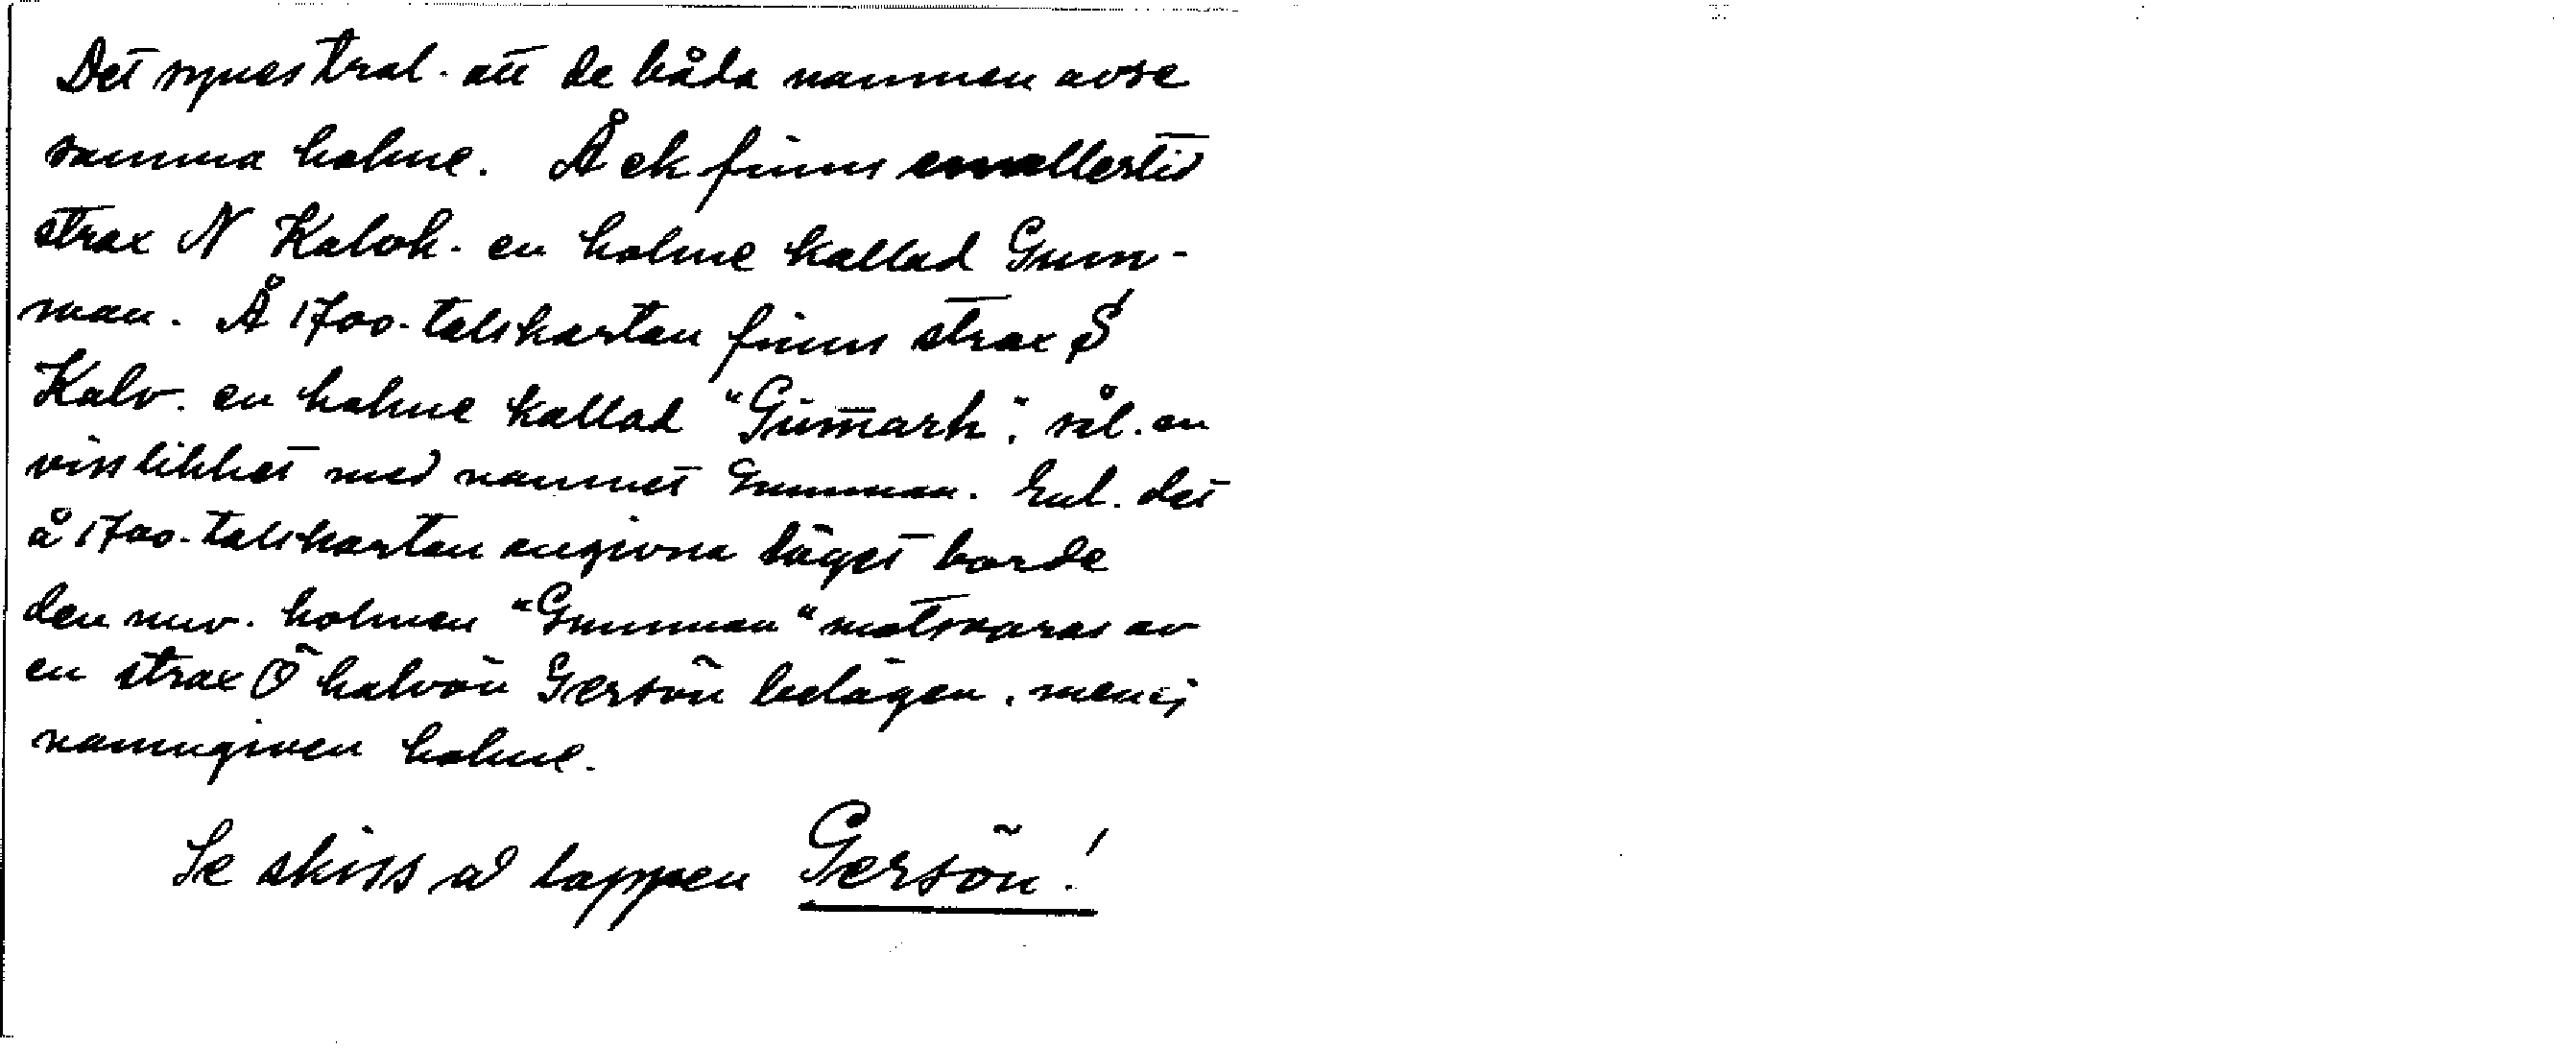 Det synes tral. att de båda namnen avse
samma holme. Å ek finns emellertid
strax N Kalvh. en holme kallad Gum-
man. Å 1700-talskartan finns strax S
Kalv. en holme kallad "Gum̄ark", sål. en
viss likhet med namnet Gumman. Enl. det
å 1700-talskartan angivna läget borde
den nuv. holmen "Gumman" motsvaras av
en strax Ö halvön Gersön belägen, men ej
namngiven holme.
Se skiss å lappen Gersön!